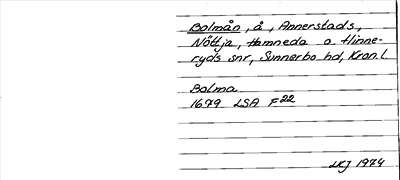 Bolmån, å, Annerstads,
Nöttja, Hamneda o. Hinne-
ryds snr, Sunnerbo hd, Kron. l.
Bolma
1679 LSA F22
LKJ 1974